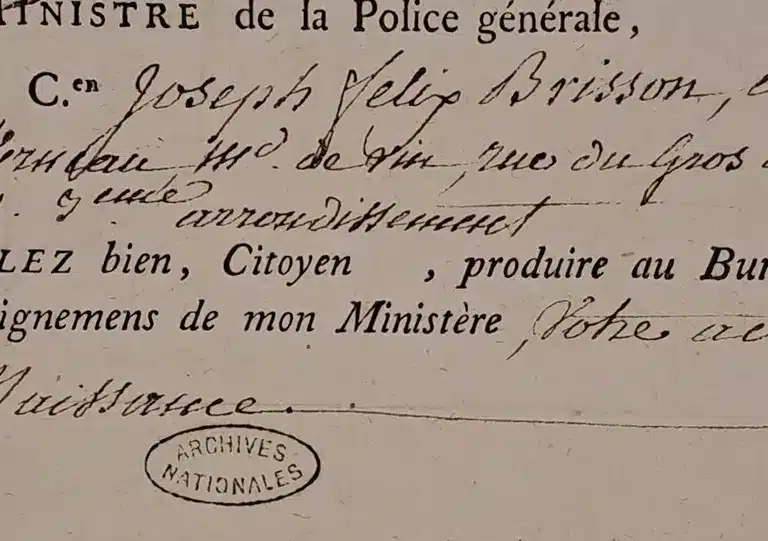 MINISTRE de la Police générale,
C.en Joseph felix Brisson,
md. de vin, rue du Gros
9eme arrondissement
LEZ bien, Citoyen , produire au Bur
ignemens de mon Ministère, Votre ac
Naissance.
ARCHIVES
NATIONALES